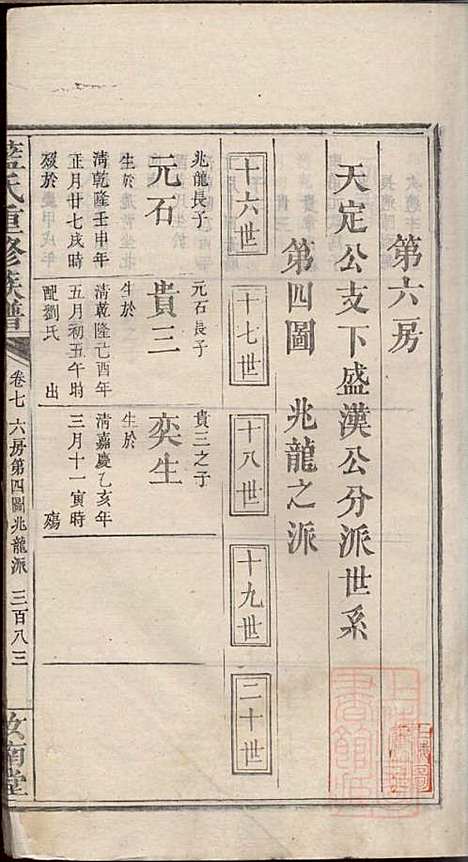 第六房
天定公支下盛漢公分派世系
第四圖 兆龍之派
十六世 十七世 十八世 十九世 二十世
兆龍長子
元石
生於
清乾隆壬申年
正月廿七戌時
歿於
元石長子
貴三
生於
清乾隆己酉年
五月初五午時
配劉氏 出
貴三之子
奕生
生於
清嘉慶乙亥年
三月十一寅時
殤
藍氏重修族譜 卷七 六房第四圖兆龍派 三百八三 汝南堂